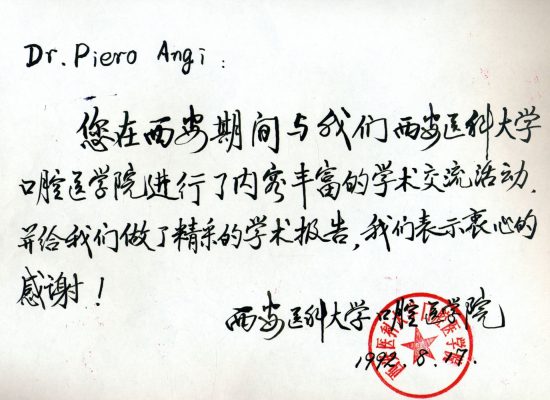 Dr. Piero Angi:
您在西安期间与我们西安医科大学
口腔医学院进行了内容丰富的学术交流活动.
并给我们做了精采的学术报告,我们表示衷心的
感谢!
西安医科大学口腔医学院
1992.8.17.